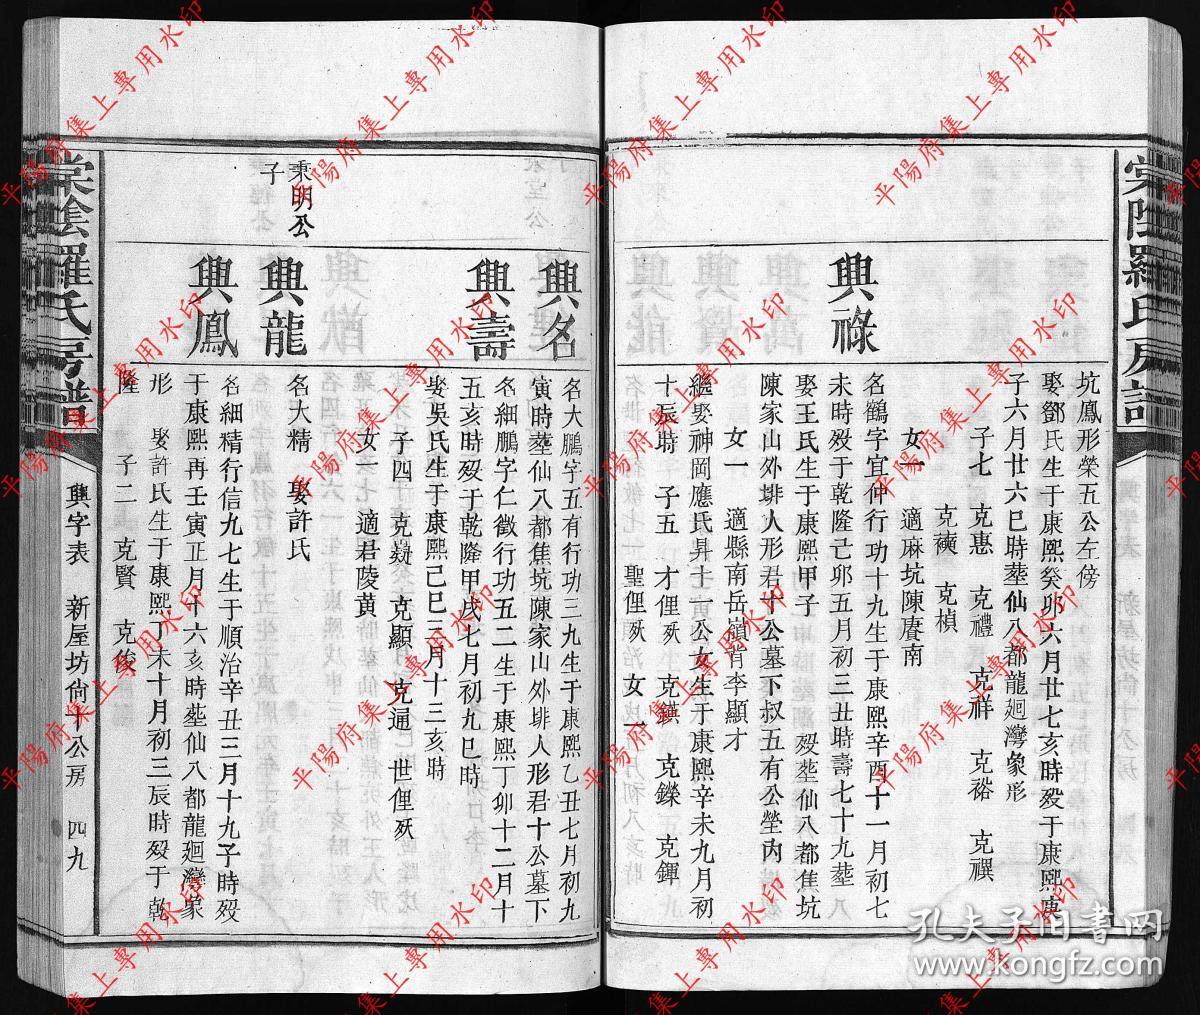 棠陰羅氏房譜
坑鳳形榮五公左傍
娶鄧氏生于康熙癸卯六月廿七亥時殁于康熙庚
子六月廿六巳時塟仙八都龍廻灣象形
子七 克惠 克禮 克祥 克裕 克禩
克 克楨
女一 適麻坑陳賡南
興祿
名鶴字宜仲行功十九生于康熙辛酉十一月初七
未時殁于乾隆己卯五月初三丑時壽七十九塟
娶王氏生于康熙甲子 殁塟仙八都焦坑
陳家山外排人形君十公墓下叔五有公塋内
女一 適縣南岳嶺背李顯才
繼娶神岡應氏昇十寅公女生于康熙辛未九月初
十辰時 子五 才俚殀 克鏌 克鑅 克鍾
聖俚殀 女一
興名
名大鵬字五有行功三九生于康熙乙丑七月初九
寅時塟仙八都焦坑陳家山外排人形君十公墓下
興壽
名細鵬字仁徵行功五二生于康熙丁卯十二月十
五亥時殁于乾隆甲戌七月初九巳時
娶吳氏生于康熙己巳三月十三亥時
子四 克嶷 克顯 克通 世俚殀
女一 適君陵黃
秉明公
子
興龍
名大精 娶許氏
興鳳
名細精行信九七生于順治辛丑三月十九子時殁
于康熙再壬寅正月十六亥時塟仙八都龍廻灣象
形 娶許氏生于康熙丁未十月初三辰時殁于乾
隆 子二 克賢 克俊
棠陰羅氏房譜
興字表 新屋坊尙十公房 四九
平陽府集上專用水印
孔夫子旧書网
www.kongfz.com